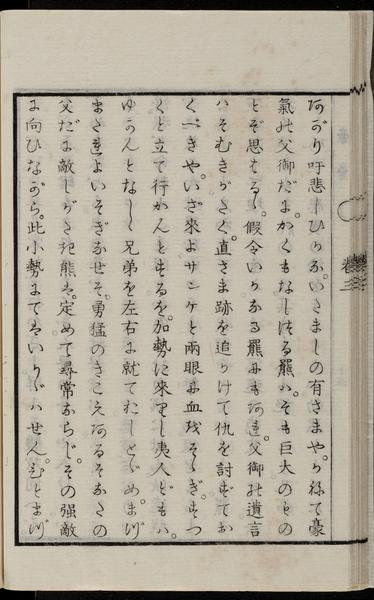 あがり吁悲しひかな。いさましの有さまや。かねて豪
氣の父御だに。かくもなしける羆ハ。そも巨大のもの
とぞ思はるゝ。假令いかなる羆にもあれ。父御の遺言
ハそむきがたく。直さま跡を追かけて仇を討ずてお
くべきや。いざ來よサンケと兩眼に血残そゝぎ。すつ
くと立て行かんとするを。加勢に來りし夷人どもハ。
ゆかんとなしゝ兄弟を左右に就ておしとゞめ。まづ
またれよいそぎなせそ。勇猛のきこえあるそなたの
父だに敵しがたき熊は。定めて尋常ならじ。その强敵
に向ひながら。此小勢にてはいかゞハせん。ひとまづ
卷三